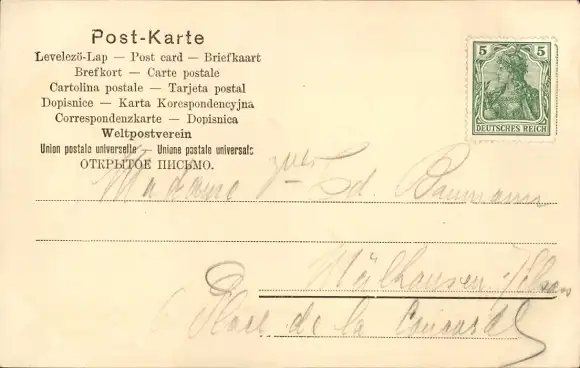 Post-Karte
Levelezö-Lap — Post card — Briefkaart
Brefkort — Carte postale
Cartolina postale — Tarjeta postal
Dopisnice — Karta Korespondencyjna
Correspondenzkarte — Dopisnica
Weltpostverein
Union postale universelle — Unione postale universale
ОТКРЫТОЕ ПИСЬМО.
5 5
DEUTSCHES REICH
Madame Ed. Baumann
Mülhausen
Place de la Concorde